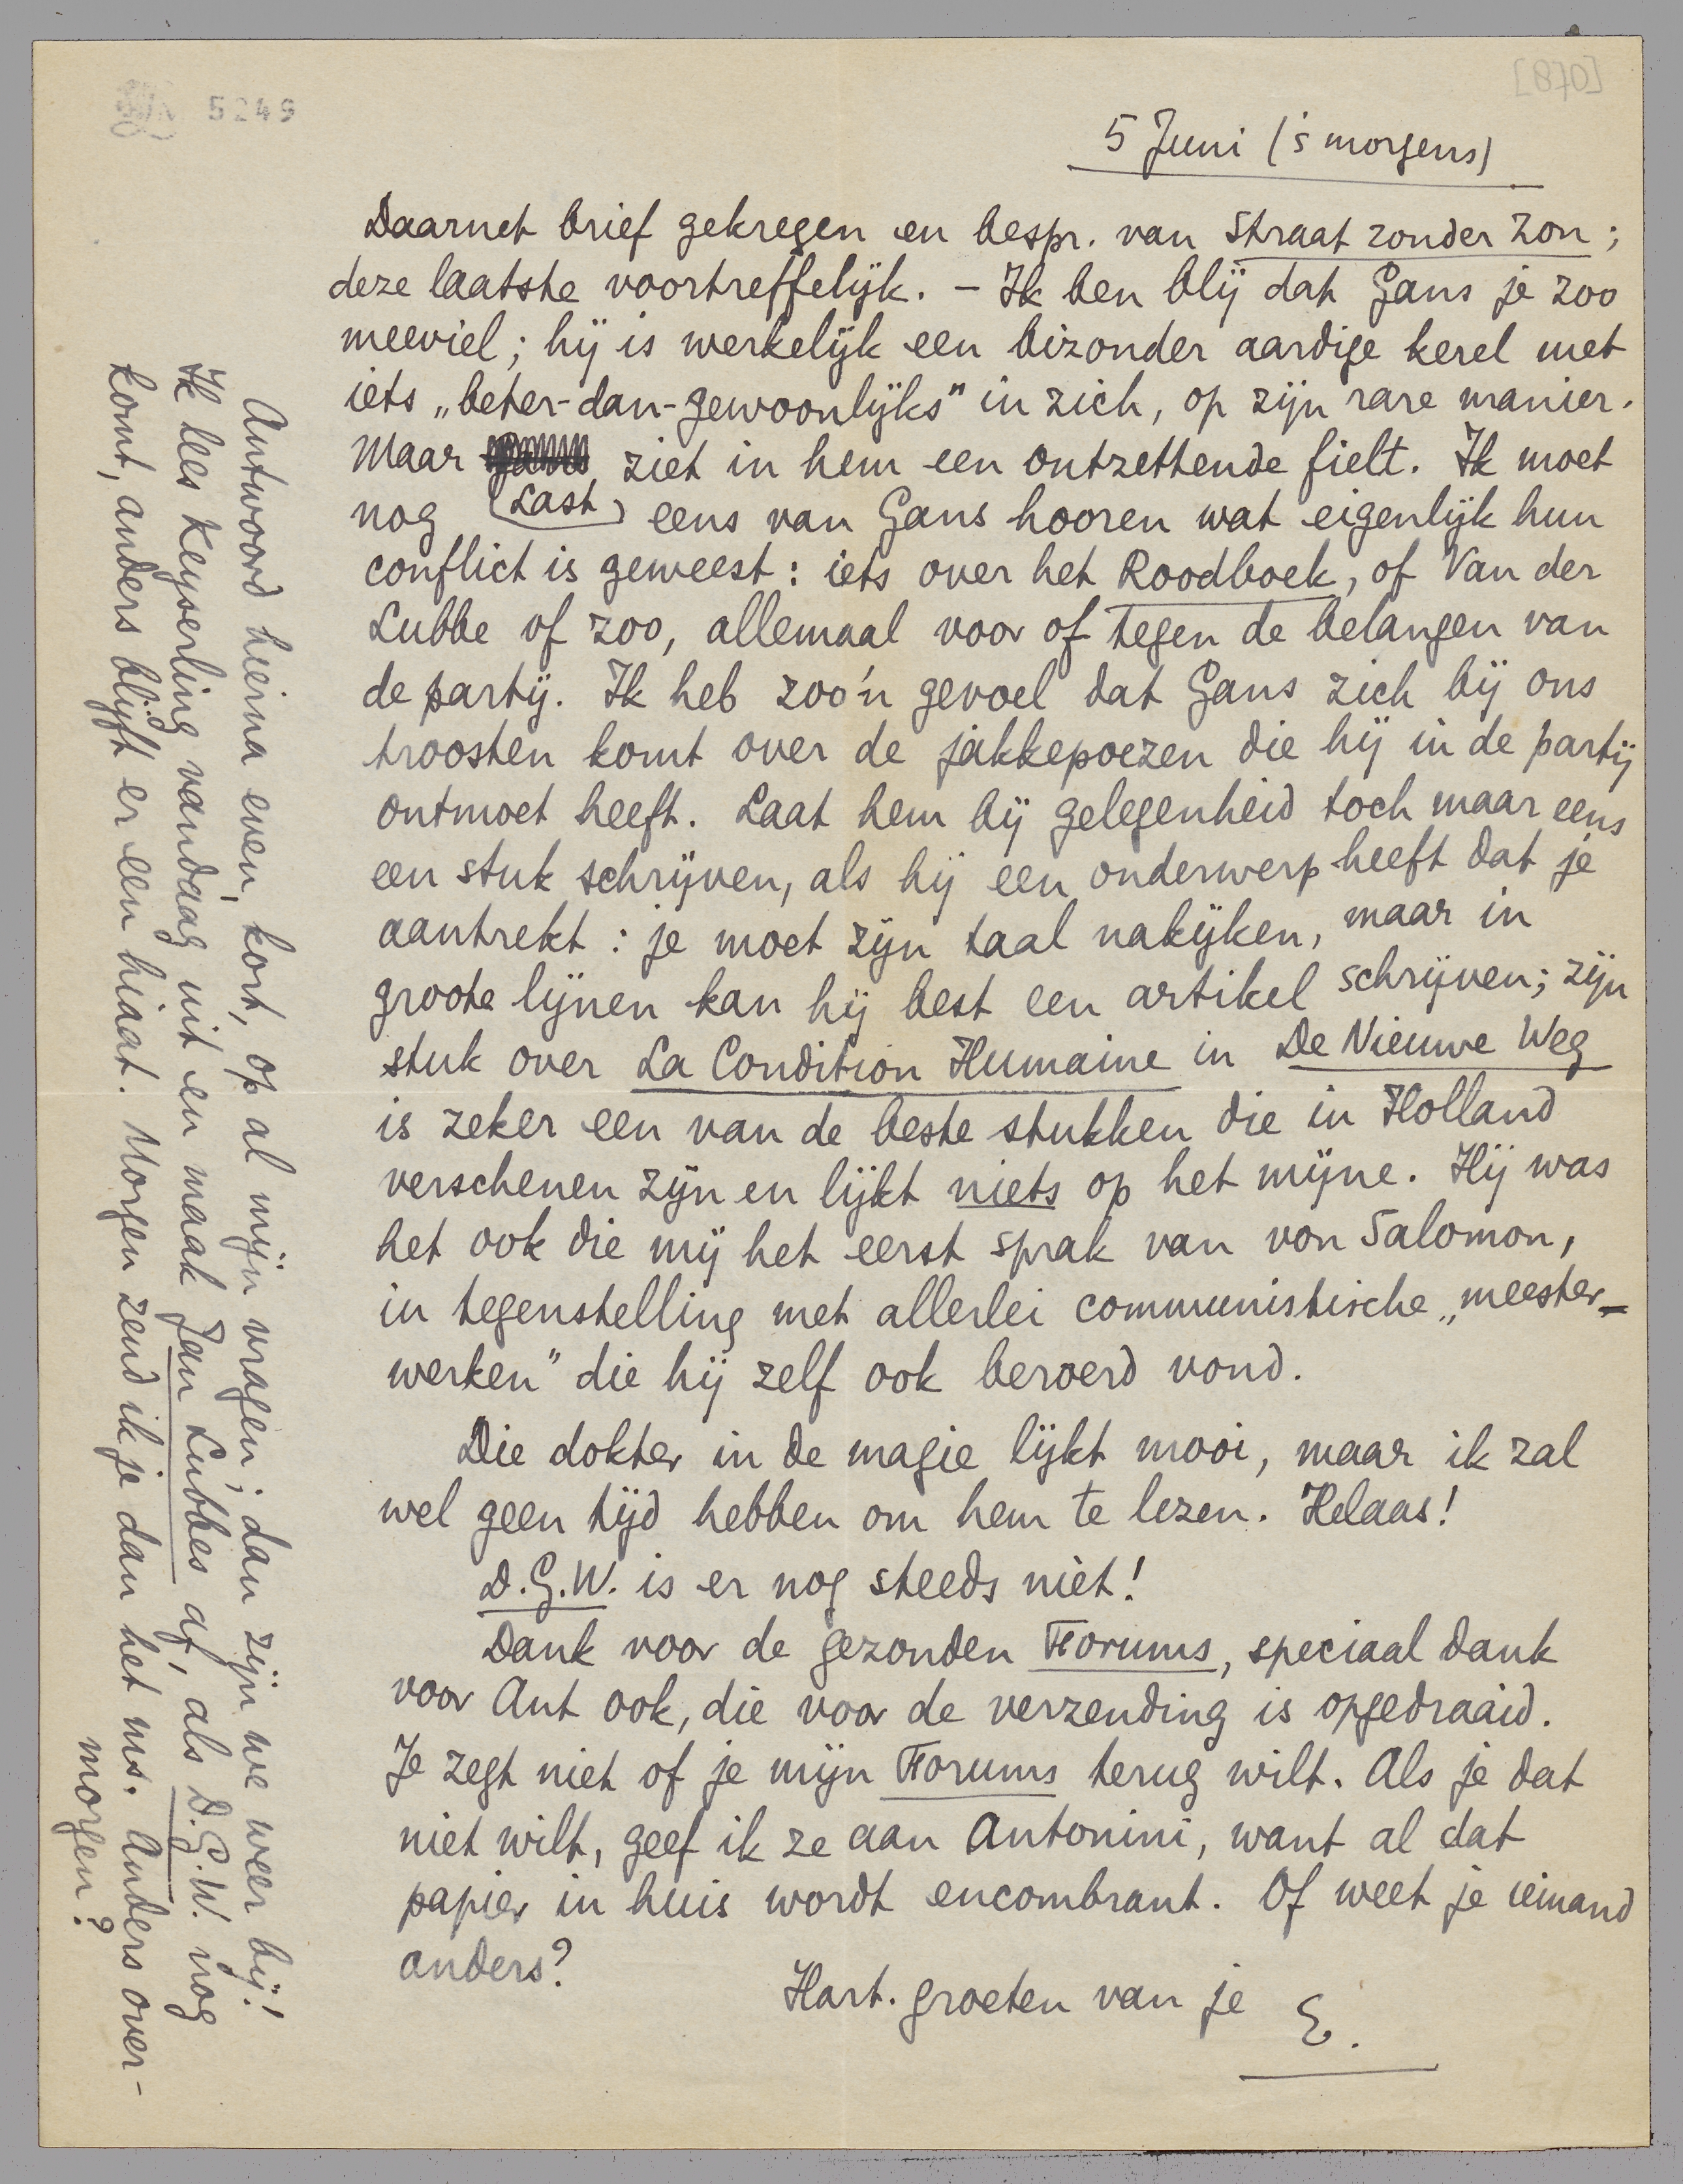 5249
[870]
5 Juni ('s morgens)
Daarnet brief gekregen en bespr. van Straat zonder Zon;
deze laatste voortreffelijk. – Ik ben blij dat Gans je zoo
meeviel; hij is werkelijk een bizonder aardige kerel met
iets „beter-dan-gewoonlijks" in zich, op zijn rare manier.
Maar ziet in hem een ontzettende fielt. Ik moet
nog (Last) eens van Gans hooren wat eigenlijk hun
conflict is geweest: iets over het Roodboek, of Van der
Lubbe of zoo, allemaal voor of tegen de belangen van
de partij. Ik heb zoo'n gevoel dat Gans zich bij ons
troosten komt over de jakkepoezen die hij in de partij
ontmoet heeft. Laat hem bij gelegenheid toch maar eens
een stuk schrijven, als hij een onderwerp heeft dat je
aantrekt: je moet zijn taal nakijken, maar in
groote lijnen kan hij best een artikel schrijven; zijn
stuk over La Condition Humaine in De Nieuwe Weg
is zeker een van de beste stukken die in Holland
verschenen zijn en lijkt niets op het mijne. Hij was
het ook die mij het eerst sprak van von Salomon,
in tegenstelling met allerlei communistische „meester-
werken" die hij zelf ook beroerd vond.
Die dokter in de magie lijkt mooi, maar ik zal
wel geen tijd hebben om hem te lezen. Helaas!
D.G.W. is er nog steeds niet!
Dank voor de gezonden Forums, speciaal dank
voor Ant ook, die voor de verzending is opgedraaid.
Je zegt niet of je mijn Forums terug wilt. Als je dat
niet wilt, geef ik ze aan Antonini, want al dat
papier in huis wordt encombrant. Of weet je iemand
anders?
Hart. groeten van je E.
Antwoord hierna even, kort, op al mijn vragen; dan zijn we weer bij!
Ik lees Keyserling vandaag uit en maak Jan Lubbes af, als D.G.W. nog
komt, anders blijft er een hiaat. Morgen zend ik je dan het ms. Anders over-
morgen?